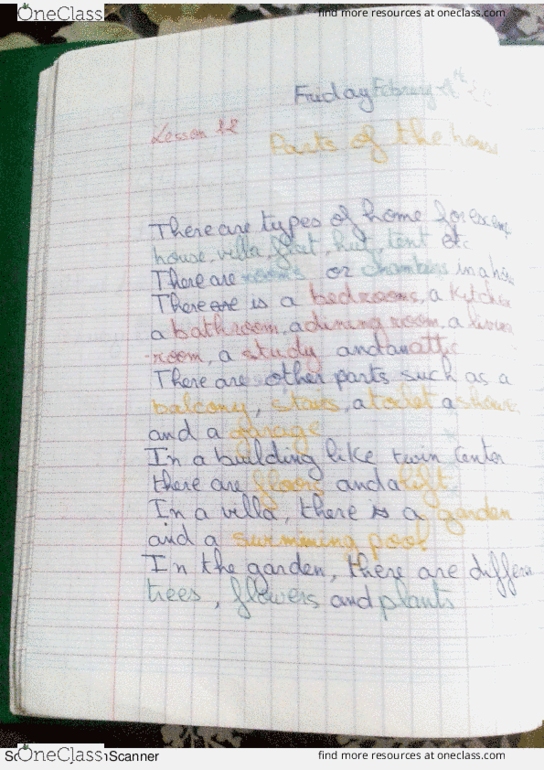 OneClass
find more resources at oneclass.com
Friday February
Lesson 12
Parts of the hous
There are types of home for examp
house, villa, flat, hut, tent etc
There are rooms or chambers in a
There are is a bedrooms, a kitche
a bathroom, a dining room, a livin
room, a study and an attic
There are others parts such as a
balcony, stairs, a toilet a shower
and a garage
In a building like twin Center
there are floors and a lift.
In a villa, there is a garden
and a swimming pool
In the garden, there are differen
trees, flowers and plants
OneClass Scanner
find more resources at oneclass.com